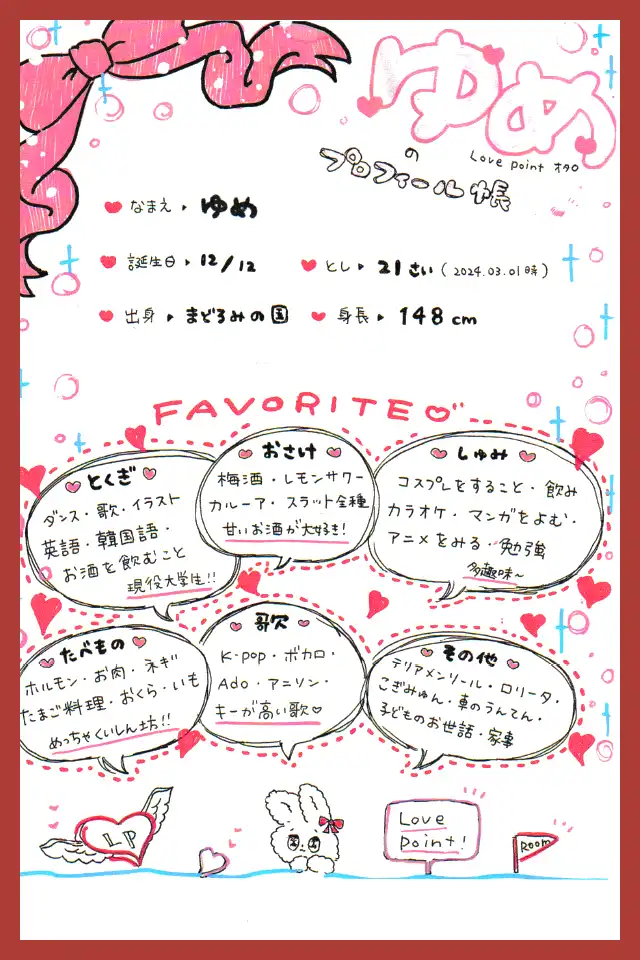 ゆめ
Love point オタロ
の
プロフィール帳
なまえ ▸ ゆめ
誕生日 ▸ 12/12
とし ▸ 21さい (2024.03.01時)
出身 ▸ まどろみの国
身長 ▸ 148cm
FAVORITE♡
とくぎ
ダンス・歌・イラスト
英語・韓国語・
お酒を飲むこと
現役大学生!!
おさけ
梅酒・レモンサワー
カルーア・スラット全種
甘いお酒が大好き!
しゅみ
コスプレをすること・飲み
カラオケ・マンガをよむ・
アニメをみる・勉強
多趣味~
たべもの
ホルモン・お肉・ネギ
たまご料理・おくら・いも
めっちゃくいしん坊!!
歌
K-pop・ボカロ・
Ado・アニソン・
キーが高い歌♡
その他
テリアメンリール・ロリータ・
こぎみゅん・車のうんてん・
子どものお世話・家事
LP
Love
point!
Room